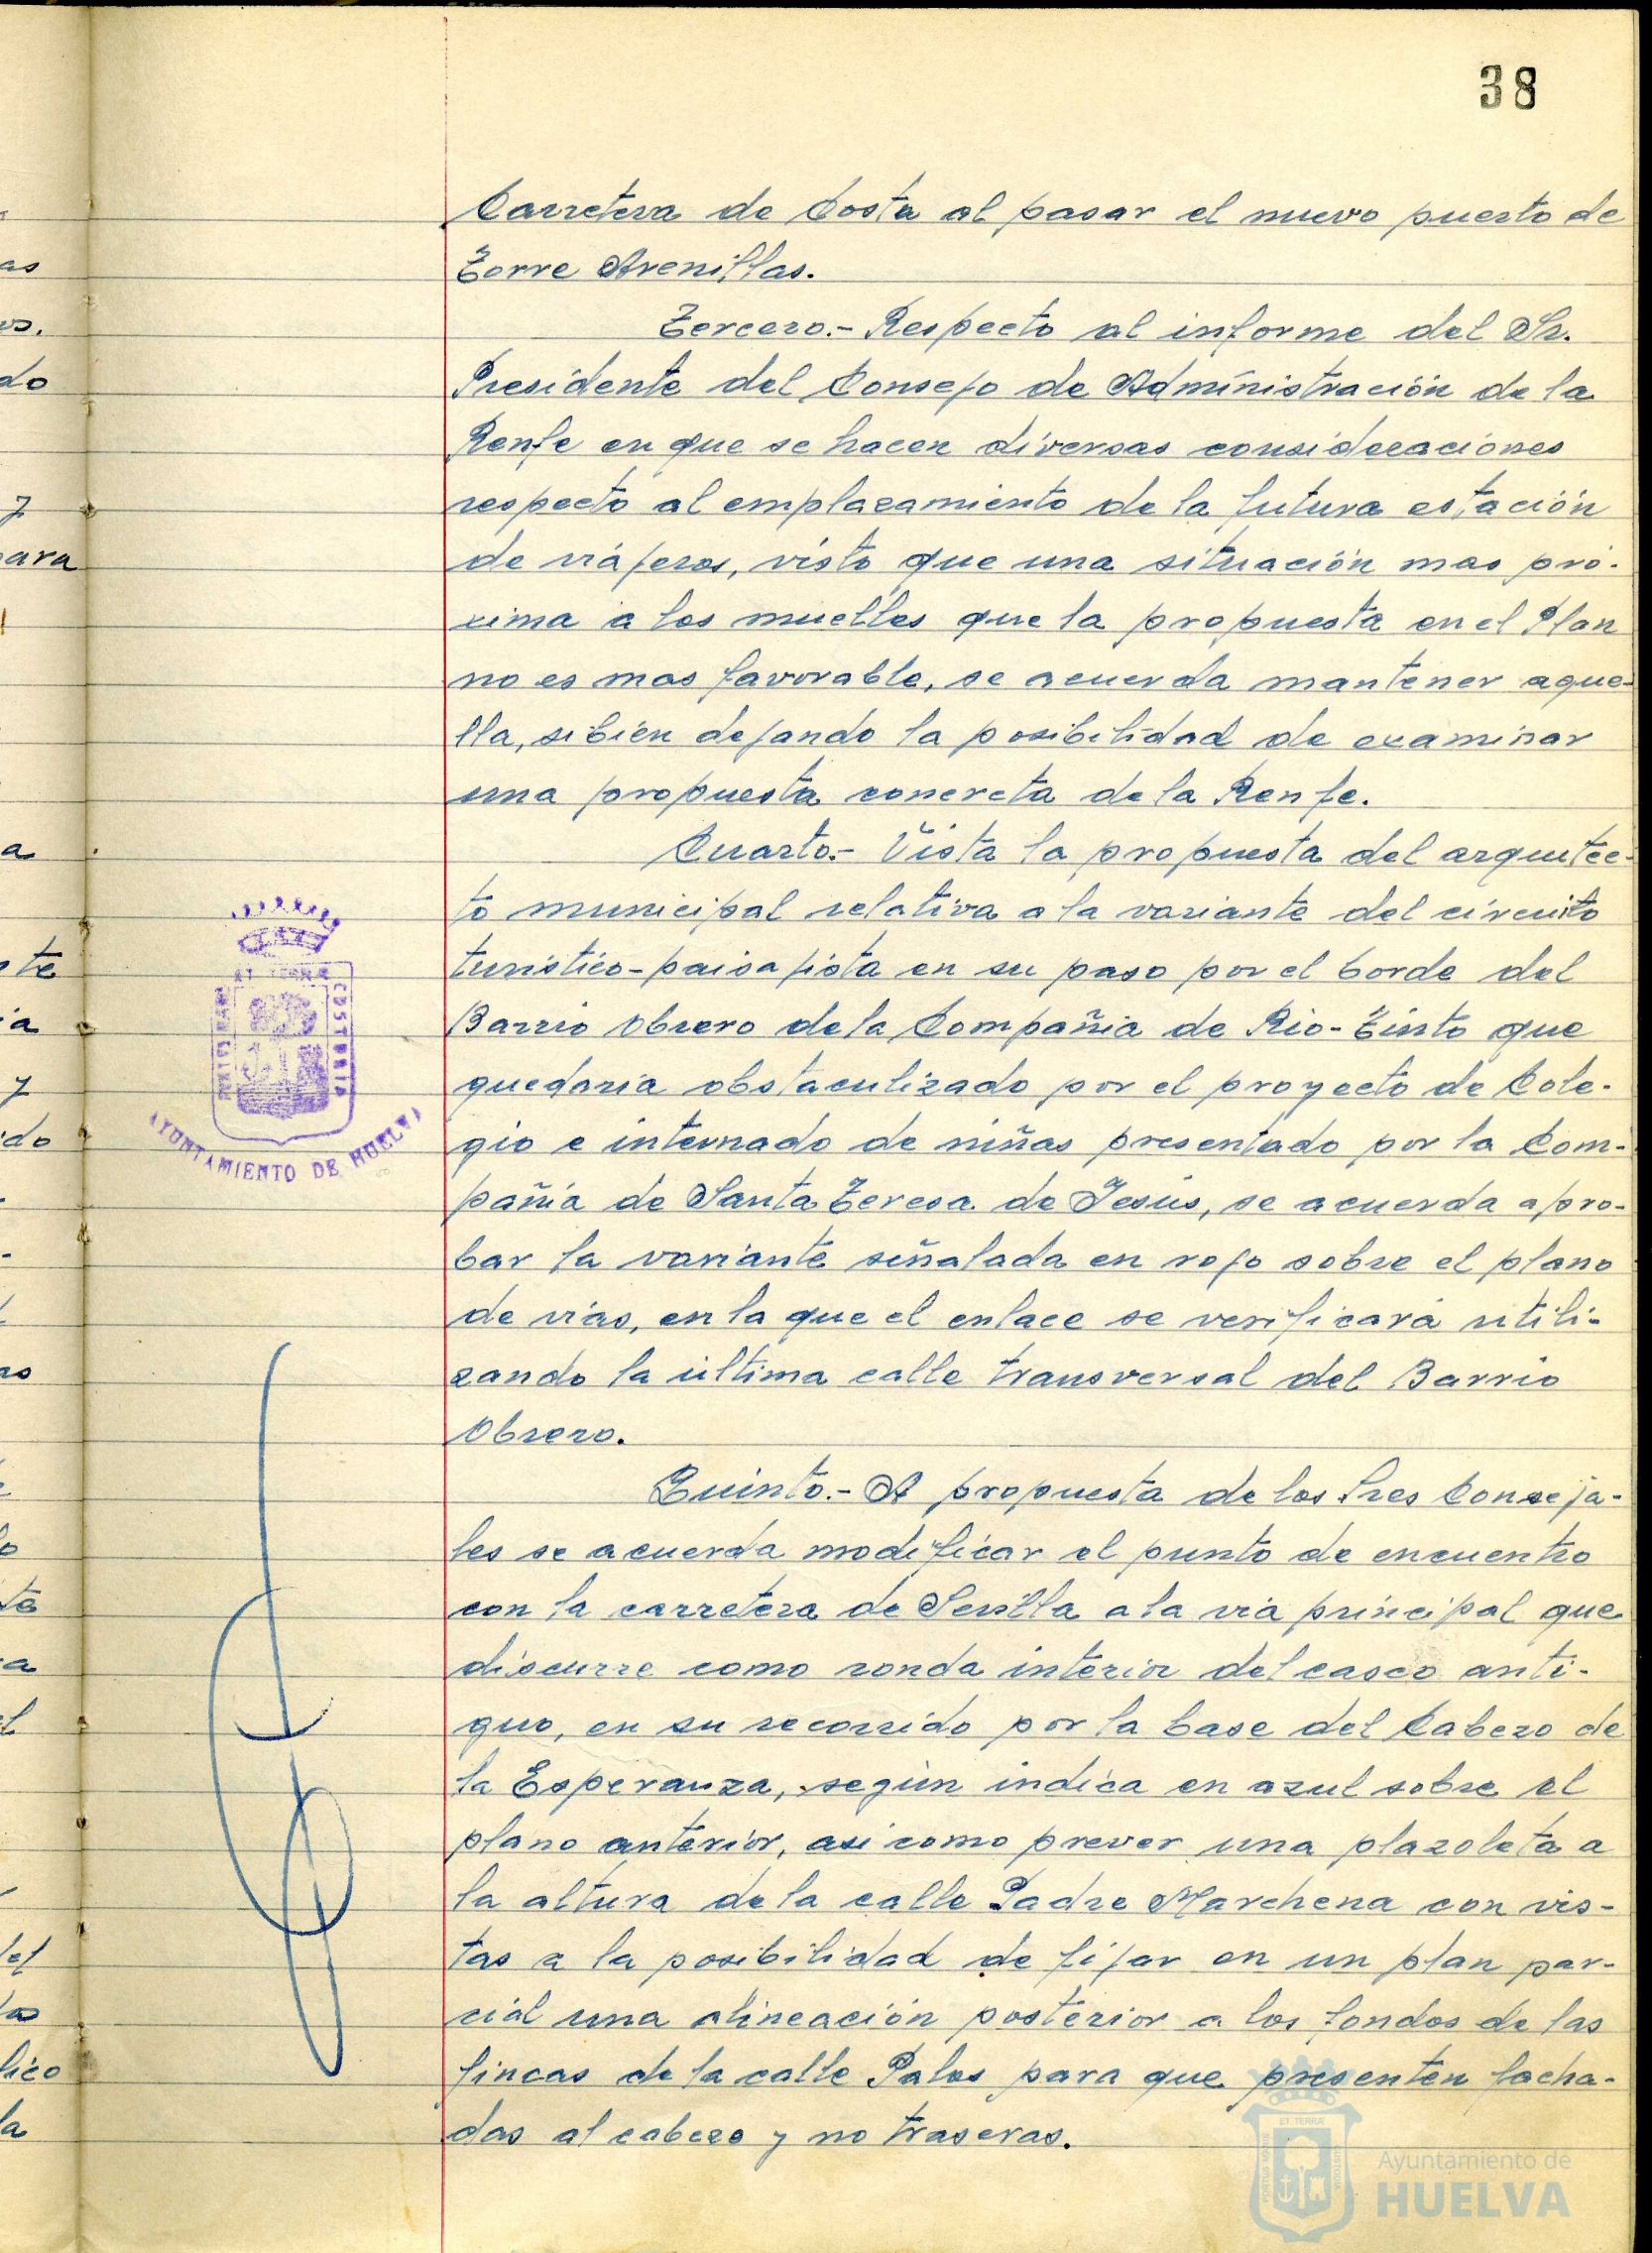 38
Carretera de Costa al pasar el nuevo puerto de
Torre Arenillas.
Tercero.- Respecto al informe del Sr.
Presidente del Consejo de Administración de la
Renfe en que se hacen diversas consideraciones
respecto al emplazamiento de la futura estación
de viajeros, visto que una situación mas pró-
xima a los muelles que la propuesta en el Plan
no es mas favorable, se acuerda mantener aque-
lla, sibién dejando la posibilidad de examinar
una propuesta concreta de la Renfe.
Cuarto.- Vista la propuesta del arquitec-
to municipal relativa a la variante del circuito
turistico-paisajista en su paso por el borde del
Barrio Obrero de la Compañia de Rio-Tinto que
quedaria obstaculizado por el proyecto de Cole-
gio e internado de niñas presentado por la Com-
pañia de Santa Teresa de Jesús, se acuerda apro-
bar la variante señalada en rojo sobre el plano
de vias, en la que el enlace se verificará utili-
zando la última calle transversal del Barrio
Obrero.
Quinto.- A propuesta de los Sres Conseja-
les se acuerda modificar el punto de encuentro
con la carretera de Sevilla a la via principal que
discurre como ronda interior del casco anti-
guo, en su recorrido por la base del Cabezo de
la Esperanza, según indica en azul sobre el
plano anterior, asi como prever una plazoleta a
la altura de la calle Padre Marchena con vis-
tas a la posibilidad de fijar en un plan par-
cial una alineación posterior a los fondos de las
fincas de la calle Palos para que presenten facha-
das al cabezo y no traseras.
as
os.
do
y
para
a
te
ia
y
do
as
a
el
del
lico
la
ET TERRÆ
CUSTODIA
AYUNTAMIENTO DE HUELVA
ET TERRÆ
Ayuntamiento de
HUELVA